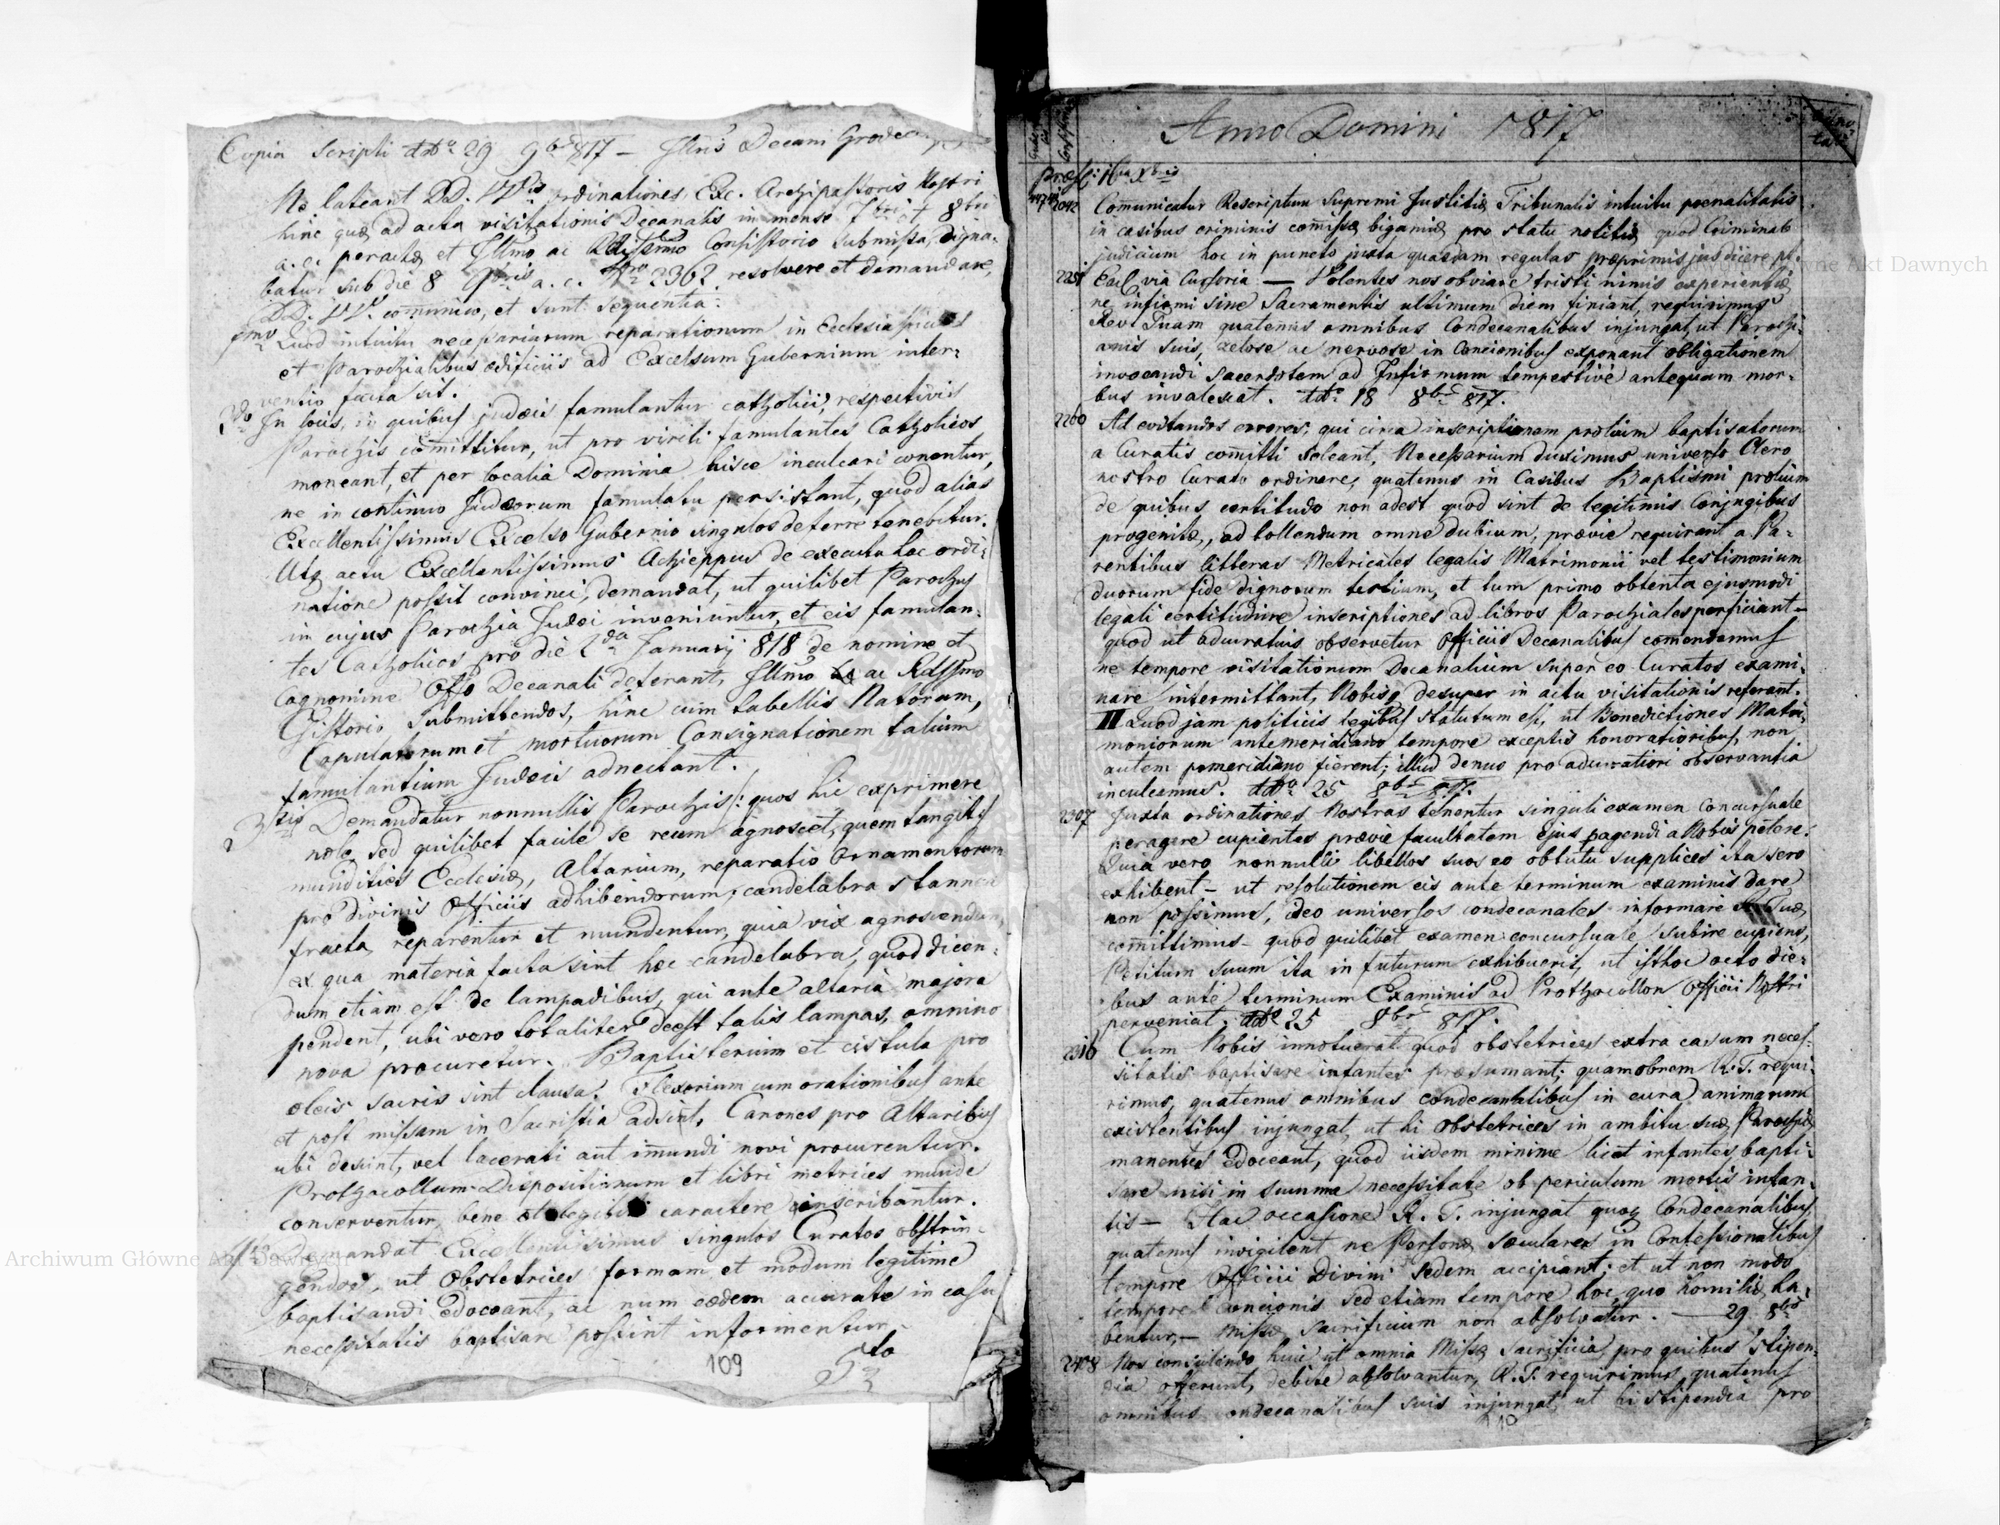 Copia Scripti ddto 29 9bris 817 – Illris Decani
Ne lateant DD. VVbis ordinationes Exc. Archipastoris Nostri
hinc quæ ad acta visitationis Decanalis in mense 7bri et 8bri
a. c. peractæ et Illmo ac Rdissimo Consistorio submissa, digna-
batur sub die 8 9bris a. c. Nro 2362. resolvere et demandare,
DD. VV. communico, et sunt sequentia:
1mo Quod intuitu necessariarum reparationum in Ecclesia
et Parochialibus ædificiis ad Excelsum Gubernium inter-
ventio facta sit.
2do In locis, in quibus judæis famulantur catholici, respectivis
Parochis committitur, ut pro viribi famulantes Catholicos
moneant, et per localia Dominia hisce inculcari conentur,
ne in continuo Judæorum famulatu persistant, quod alias
Excellentissimus Excelso Gubernio singulos deferre tenebitur.
Utq actu Excellentissimus Archieppus de executa hac ordi-
natione possit convinci, demandat, ut quilibet Parochus
in cujus Parochia Judæi inveniuntur, et eis famulan-
tes Catholicos pro die 2da Januarij 818 de nomine et
Cognomine Offo Decanali deferant, Illmo ac Rdssmo
Cstorio submittendos, hinc cum tabellis Natorum,
Copulatorum et mortuorum Consignationem talium
famulantium Judæis adnectant.
3tio Demandatur nonnullis Parochis /: quos hic exprimere
nolo sed quilibet facile se reum agnoscet, quem tangit :/
mundities Ecclesiæ, Altarium, reparatio Ornamentorum
pro divinis Officiis adhibendorum, candelabra stannea
fracta reparentur et mundentur, quia vix agnoscendum,
ex qua materia facta sint hæc candelabra, quod dicen-
dum etiam est de lampadibus, qui ante altaria majora
pendent, ubi vero totaliter deest talis lampas, omnino
nova procuretur. Baptisterium et cistula pro
oleis sacris sint clausa. Flexorium cum orationibus ante
et post missam in Sacristia adsint, Canones pro Altaribus
ubi desint, vel lacerati aut immundi novi procurentur.
Prothocollum Dispositionum et libri metrices munde
conserventur, bene et legibili caractere inscribantur.
4to Demandat Excellentissimus singulos Curatos obstrin-
gendos, ut Obstetrices formam et modum legitime
baptisandi edoceant, ac num eædem accurate in casu
necessitatis baptisare possint informentur.
109
5to
Anno Domini 1817
præs: 16ta Xbris
2092 Comunicatur Rescriptum Supremi Justitiæ Tribunalis intuitu poenalitatis
in casibus criminis comissæ bigamiæ pro statu notitiæ quod Criminale
judicium hoc in puncto juxta quasdam regulas præprimis jus dicere pt.
2251 Exc via Cursoria — Volentes nos obviare tristi nimis experientiæ
ne infirmi sine Sacramentis ultimum diem finiant, requirimus
Revd Tuam quatenus omnibus Condecanalibus injungat, ut Parochi-
anis suis, zelose ac nervose in Concionibus exponant obligationem
invocandi Sacerdotem ad Infirmum tempestivé antequam mor-
bus invalescat. ddto 18 8bris 817.
2260 Ad evitandos errores, qui circa inscriptionem prolium baptisatorum
a Curatis comitti soleant, Necessarium duximus universo Clero
nostro Curato ordinare, quatenus in Casibus Baptismi prolium
de quibus certitudo non adest quod sint de legitimis Conjugibus
progenitæ, ad tollendum omne dubium, prævie requirant a Pa-
rentibus litteras Metricales legalis Matrimonii vel testimonium
duorum fide dignorum testium, et tum primo obtenta ejusmodi
legali certitudine inscriptiones ad libros Parochiales perficiant –
quod ut accuratius observetur Officiis Decanalibus comendamus
ne tempore visitationum Decanalium super eo Curatos exami-
nare intermittant, Nobisq desuper in actu visitationis referant.
II Quod jam politicis legibus statutum est, ut Benedictiones Matri-
moniorum antemeridiano tempore exceptis honoratioribus, non
autem pomeridiano fierent; illud denuo pro accuratiori observantia
inculcamus. ddto 25 8bris 817.
2307 Juxta ordinationes Nostras tenentur singuli examen concursuale
peragere cupientes prævie facultatem ejus pagendi a Nobis petere.
Quia vero nonnulli libellos suos eo obtutu supplices ita sero
exhibent – ut resolutionem eis ante terminum examinis dare
non possimus, ideo universos condecanales informare
comittimus – quod quilibet examen concursuale subire cupiens,
Petitum suum ita in futurum exhibuerit, ut isthoc octo die-
bus ante terminum Examinis ad Prothocollon Officii Nostri
perveniat. ddto 25 8bris 817.
2316 Cum Nobis innotuerat quod obstetrices extra casum neces-
sitatis baptisare infantes præsumant; quamobrem R. T. requi-
rimus, quatenus omnibus condecanalibus in cura animarum
existentibus injungat, ut hi obstetrices in ambitu suæ Parochiæ
manentes edoceant, quod iisdem minime licet infantes bapti-
sare nisi in summa necessitate ob periculum mortis infan-
tis – Hac occasione R. T. injungat quoq Condecanalibus
quatenus invigilent ne Personæ sæculares in Confessionalibus
tempore Officii Divini sedem accipiant; et ut non modo
tempore Concionis sed etiam tempore hoc, quo homiliæ ha-
bentur, – Missæ sacrificium non absolvatur. — 29 8bris
2408 Nos consulendo huic ut omnia Missæ Sacrificia, pro quibus Stipen-
dia offerunt, debite absolvantur, R. T. requirimus, quatenus
omnibus condecanalibus suis injungat, ut hi stipendia pro
110
Archiwum Główne Akt Dawnych
Archiwum Główne Akt Dawnych